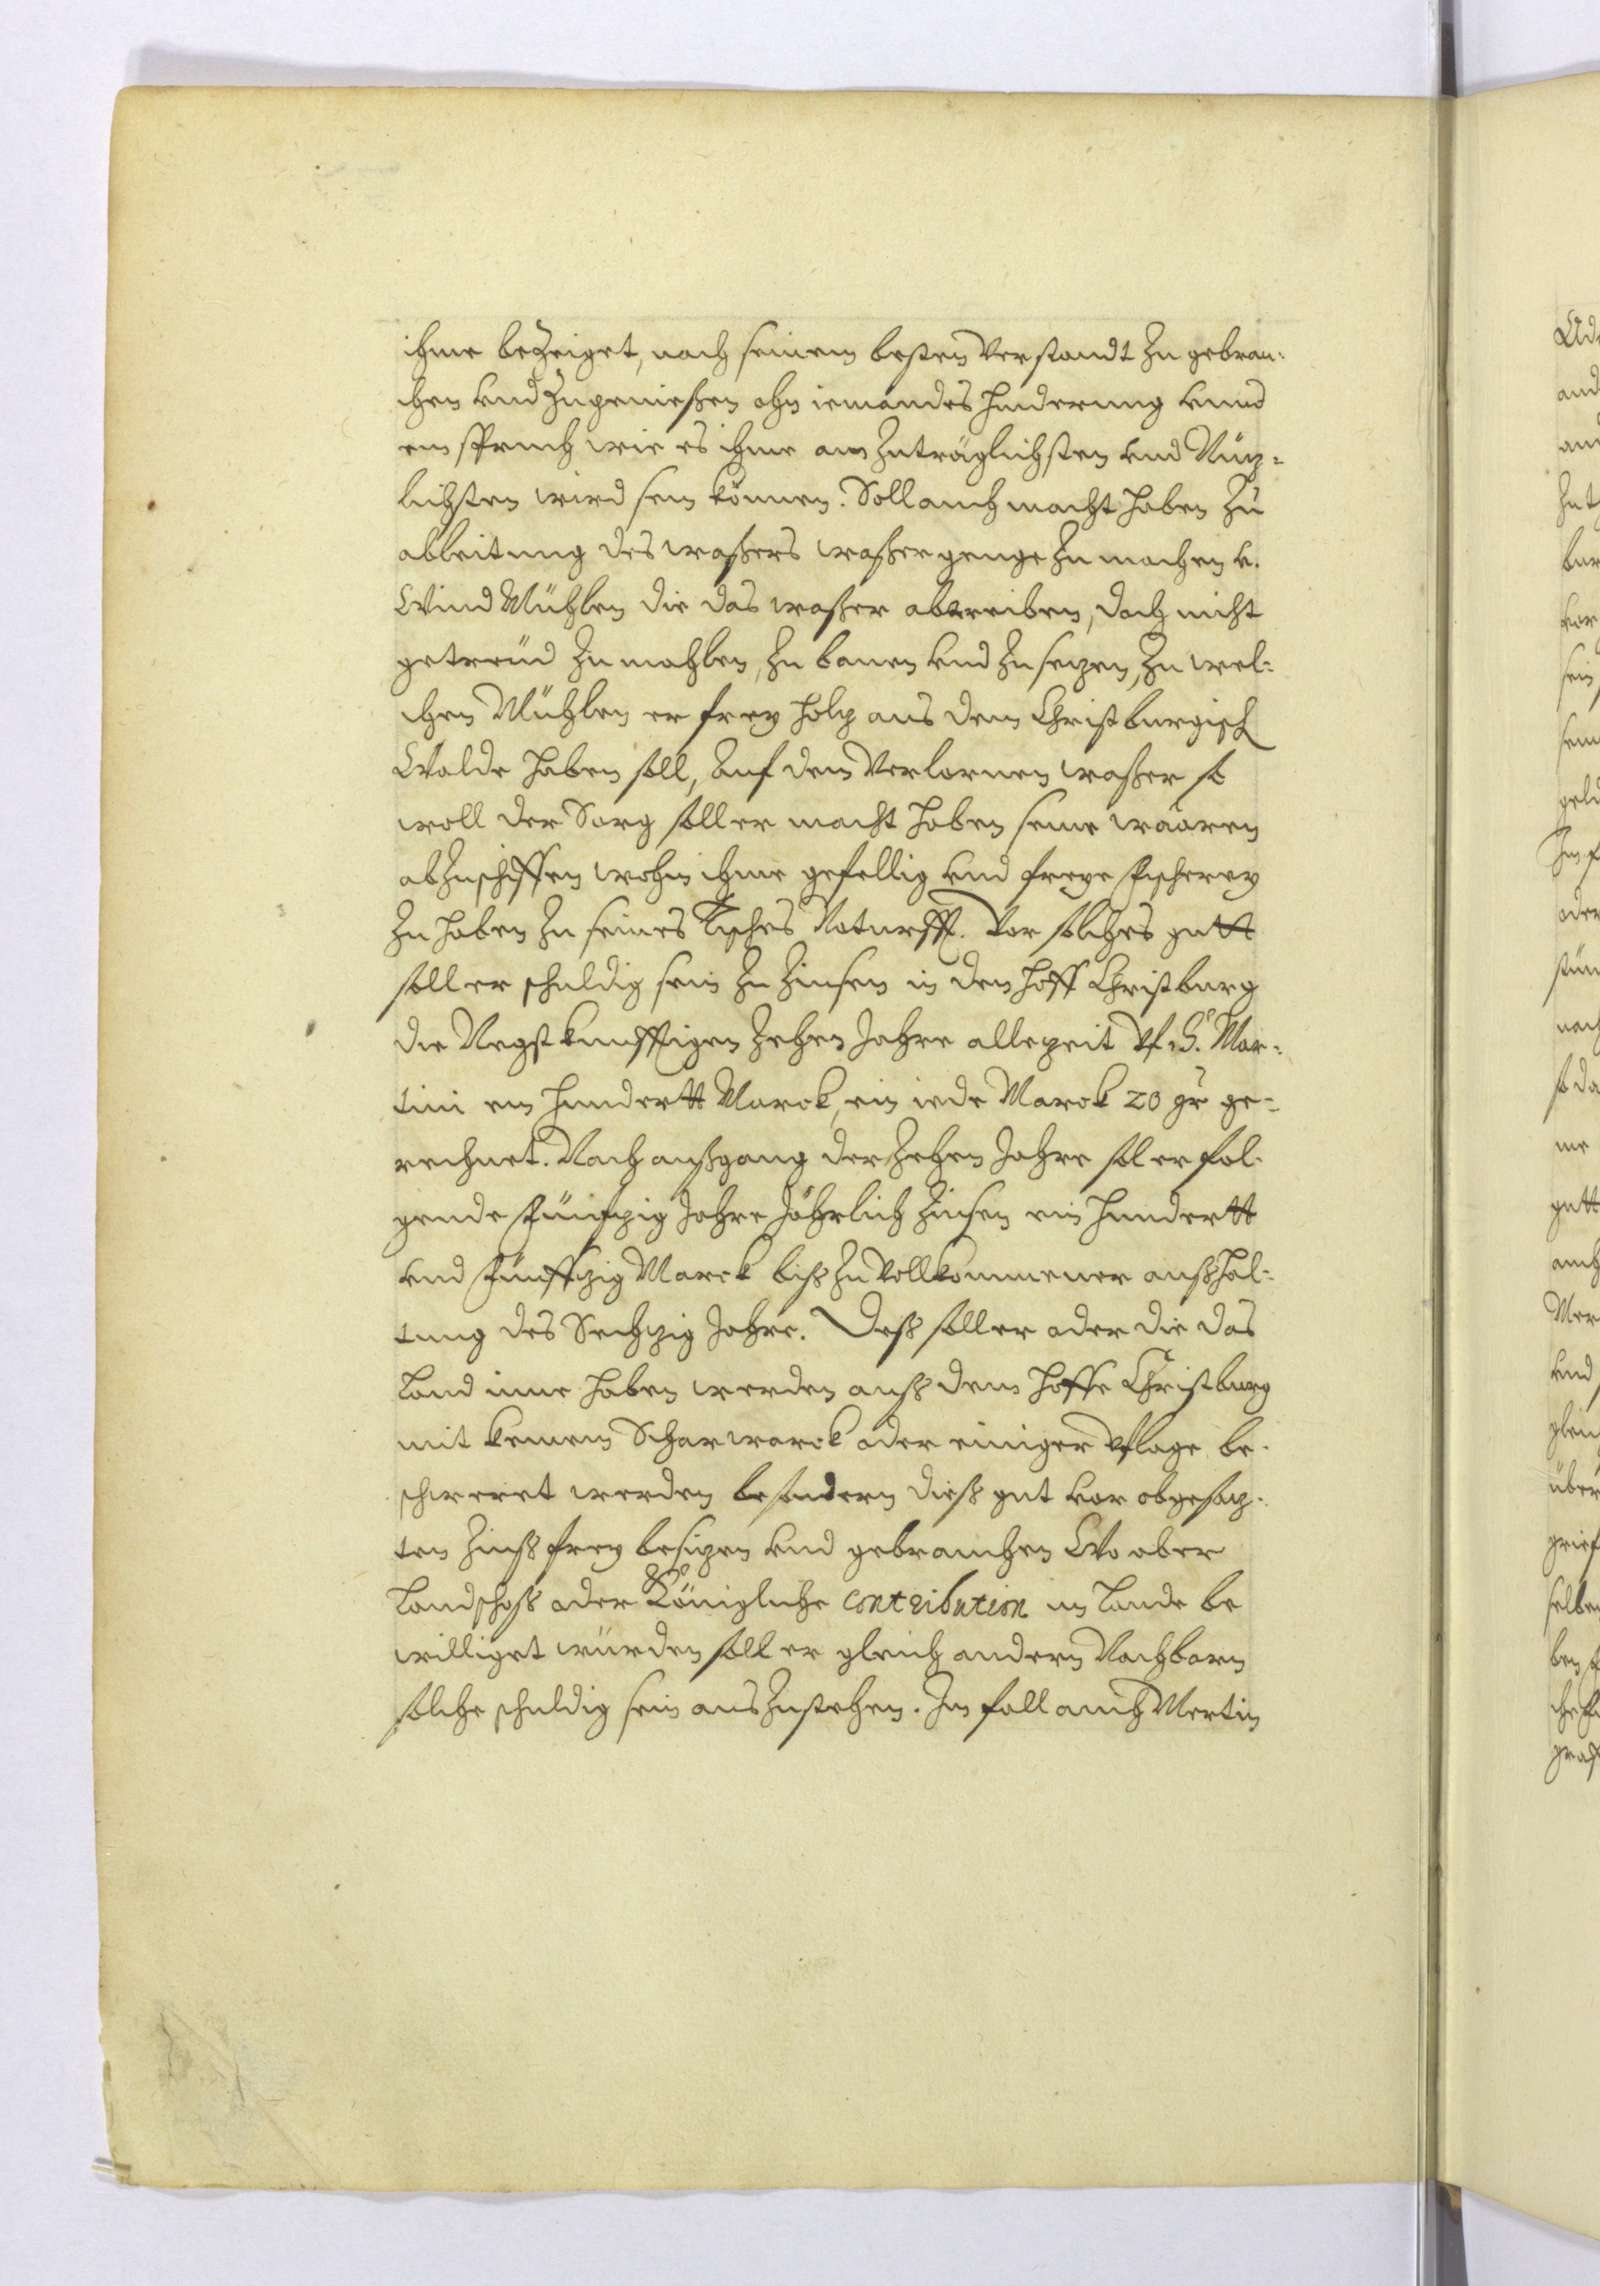 ihme bezeiget, nach seinem besten Verstandt zu gebrau-
chen vnd zugenießen ohn iemandes Hinderung vnnd
einspruch wie es ihme am zuträglichsten vnd Nütz-
lichsten wird sein können. Soll auch macht haben zu
ableitung des waßers waßergenge zu machen v.
Wind Mühlen die das waßer abtreiben, doch nicht
getreüd zu mahlen, zu bauen vnd zu setzen, zu wel-
chen Mühlen er frey Holtz aus dem Christburgisch
Walde haben soll, Auf dem Verlornen waßer so
woll der Sorg soll er macht haben seine waaren
abzuschiffen wohin ihme gefellig vnd freye Fischerey
zu haben zu seines Tisches Noturfft. Vor solches gutt
soll er schuldig sein zu Zinsen in den Hoff Christburg
die Negst kunfftigen Zehen Jahre allezeit vf. S. Mar-
tini ein Hundertt Marck, ein iede Marck 20 gr ge-
rechnet. Nach außgang der Zehen Jahre sol er fol-
gende Fünfzig Jahre Jährlich Zinsen ein Hundertt
vnd Fünffzig Marck biß zu Vollkommener außhal-
tung des Sechzig Jahre. Deß soll er oder die das
Land inne haben werden auß dem Hoffe Christburg
mit keinem Scharwarck oder einiger vflage be-
schweret werden besondern dieß gut vor obgesatz-
ten Zinß frey besitzen vnd gebrauchen Wo aber
Landschoß oder Königliche contribution im Lande be
williget würden soll er gleich andern Nachbarn
solche schuldig sein aus zustehen. Im fall auch Mertin